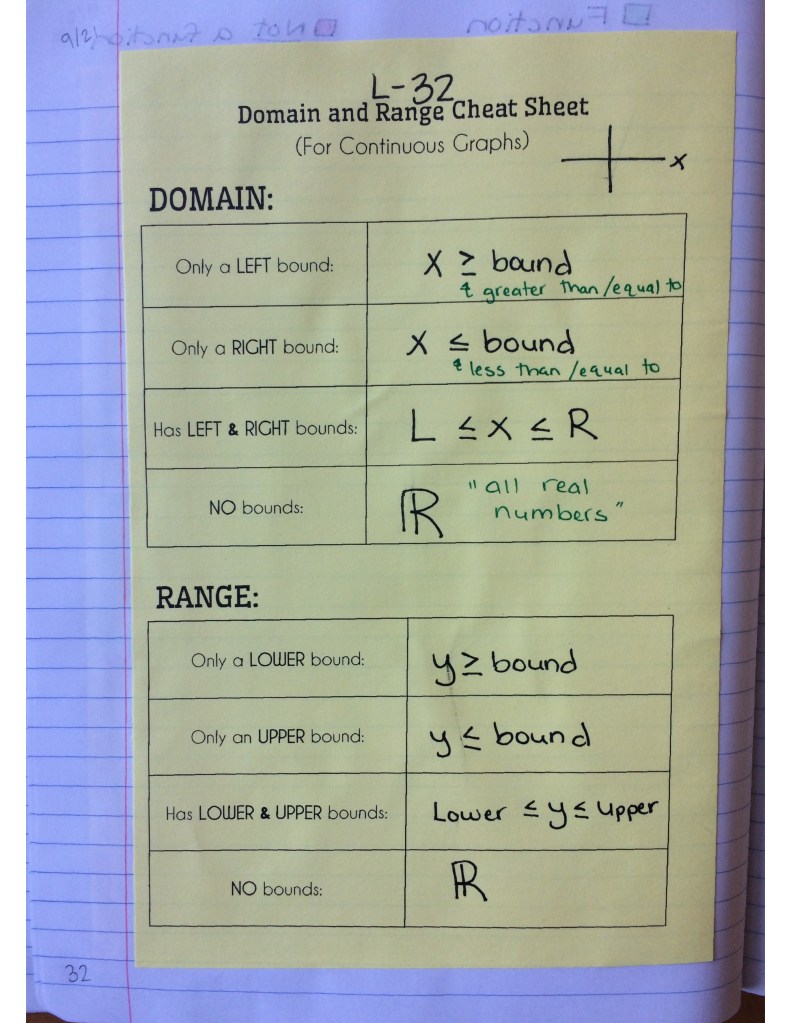 L-32
Domain and Range Cheat Sheet
(For Continuous Graphs)
x
DOMAIN:
Only a LEFT bound:
x ≥ bound
greater than/equal to
Only a RIGHT bound:
x ≤ bound
less than/equal to
Has LEFT & RIGHT bounds:
L ≤ x ≤ R
NO bounds:
ℝ "all real
numbers"
RANGE:
Only a LOWER bound:
y ≥ bound
Only an UPPER bound:
y ≤ bound
Has LOWER & UPPER bounds:
Lower ≤ y ≤ upper
NO bounds:
ℝ
32